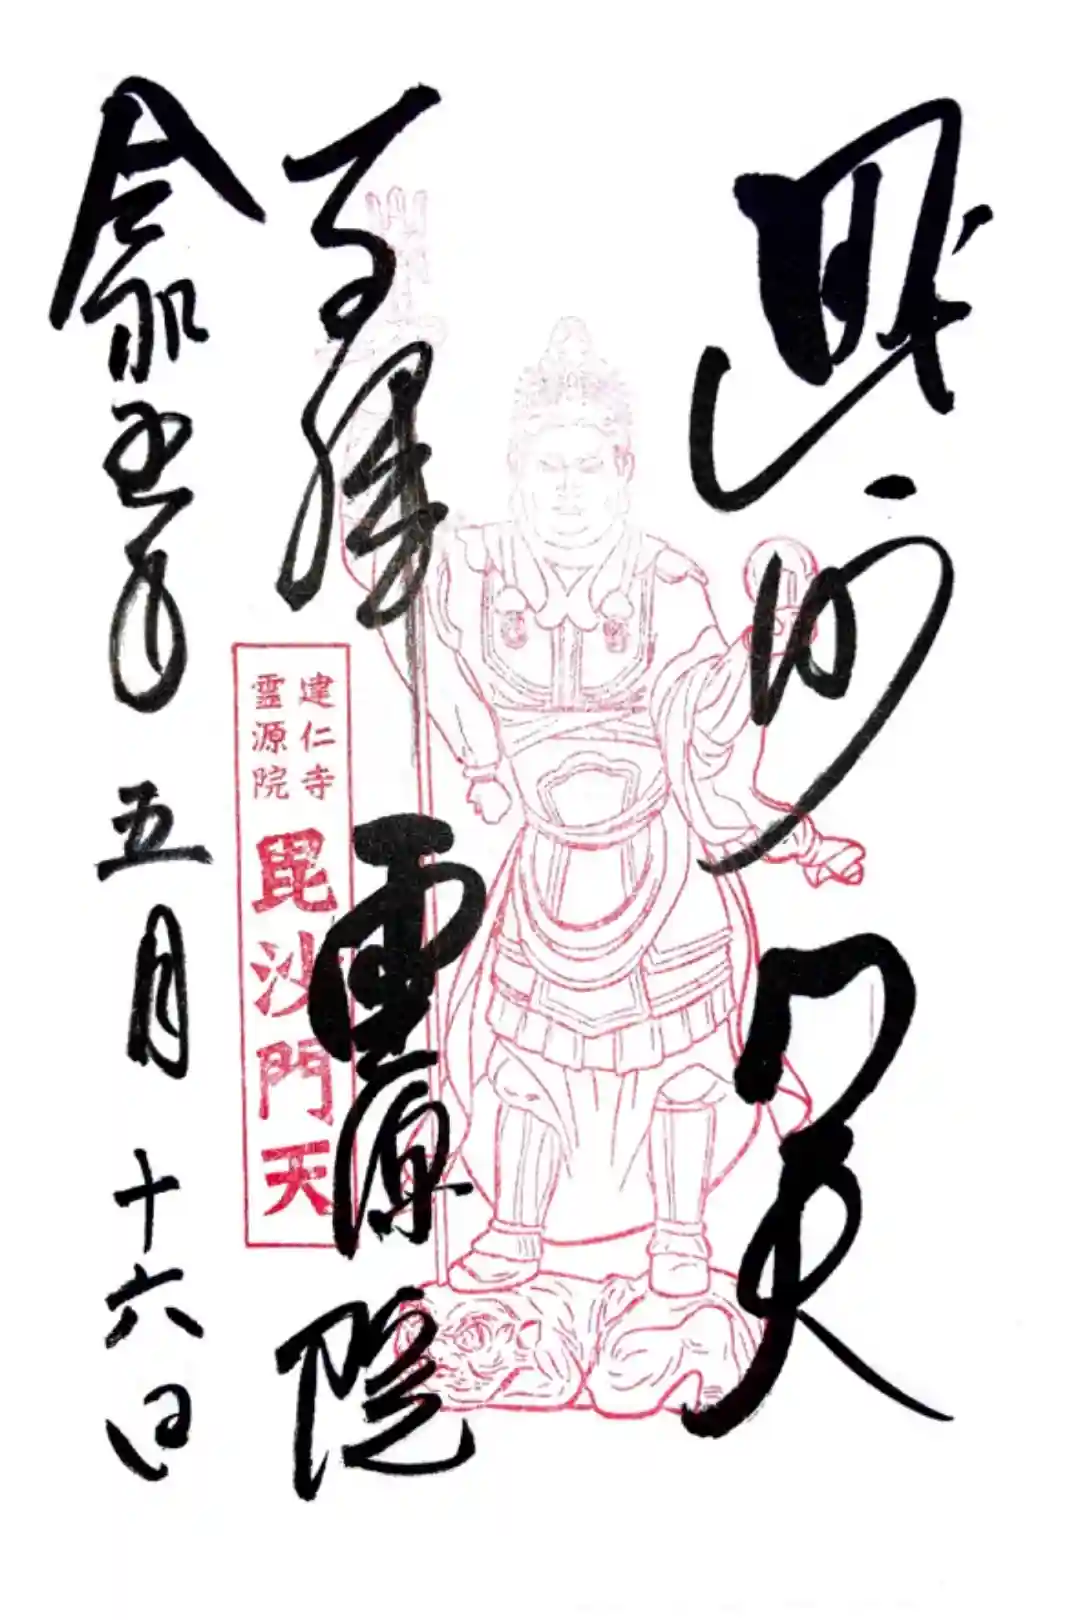 毘沙門天
奉拝 霊源院
令和五年 五月 十六日
建仁寺
霊源院
毘沙門天